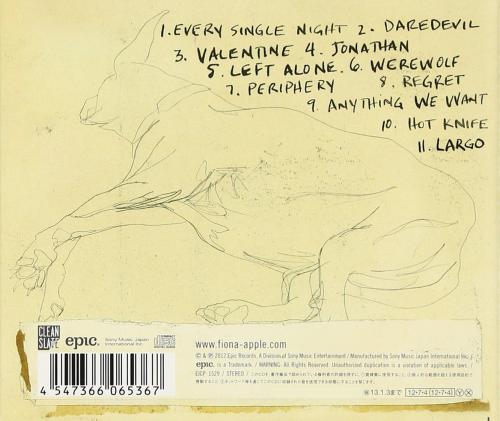 1. EVERY SINGLE NIGHT 2. DAREDEVIL
3. VALENTINE 4. JONATHAN
5. LEFT ALONE. 6. WEREWOLF
7. PERIPHERY 8. REGRET
9. ANYTHING WE WANT
10. HOT KNIFE
11. LARGO
CLEAN SLATE epic. Sony Music Japan International Inc.
4 547366 065367
www.fiona-apple.com
© & ℗ 2012 Epic Records, A Division of Sony Music Entertainment / Manufactured by Sony Music Japan International Inc. /
epic. is a Trademark. / WARNING: All Rights Reserved. Unauthorized duplication is a violation of applicable laws. /
EICP 1529 / STEREO /
13.1.3まで 12・7・4 (12・7・4) Y X